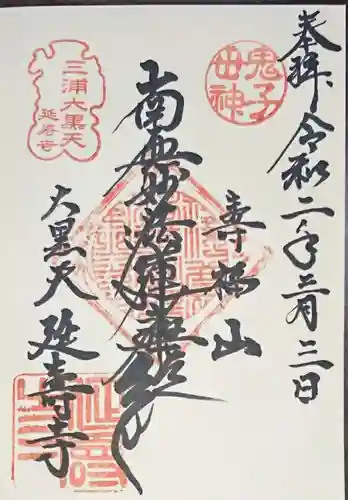 奉拝
令和二年三月三日
鬼子
母神
壽福山
南無妙法蓮華経
三浦大黒天
延寿寺
大黒天
延壽寺